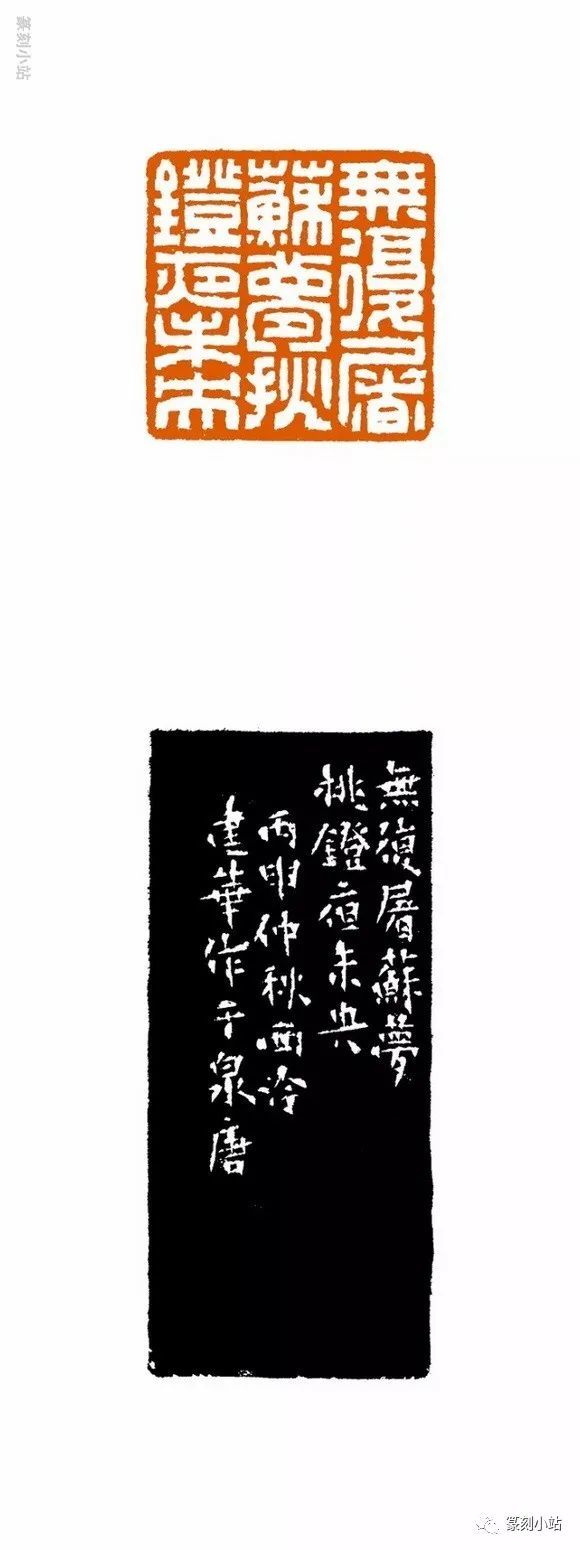 篆刻小站
無復屠
蘇夢挑
鐙夜未央
無復屠蘇夢
挑鐙夜未央
丙申仲秋西泠
建華作于泉唐
篆刻小站